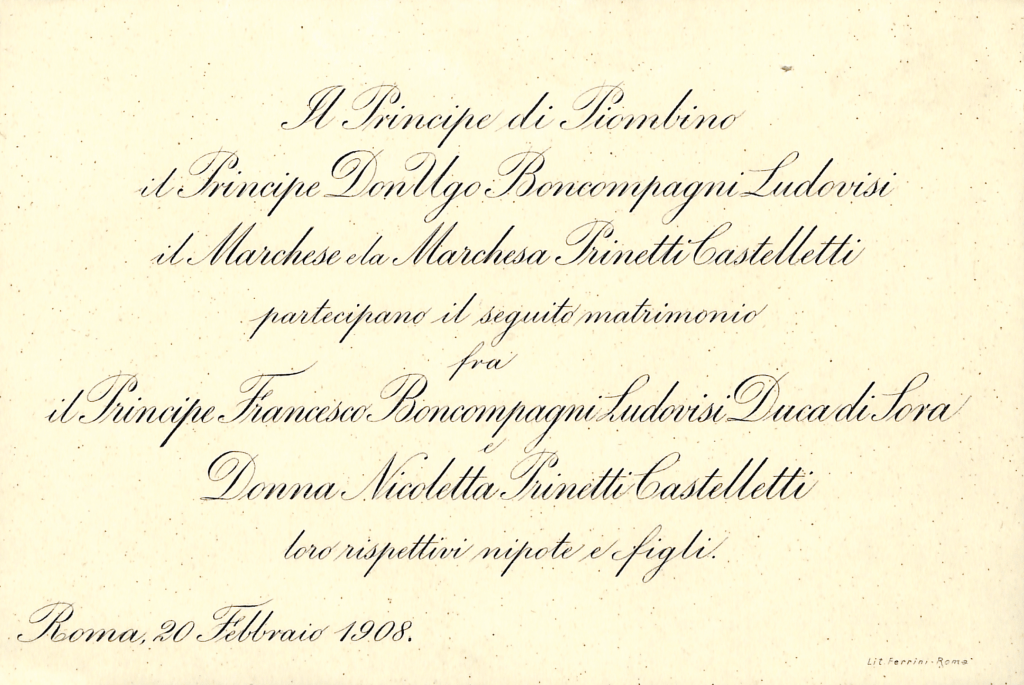 Il Principe di Piombino
il Principe Don Ugo Boncompagni Ludovisi
il Marchese e la Marchesa Prinetti Castelletti
partecipano il seguito matrimonio
fra
il Principe Francesco Boncompagni Ludovisi Duca di Sora
e
Donna Nicoletta Prinetti Castelletti
loro rispettivi nipote e figli.
Roma, 20 Febbraio 1908.
Lit. Ferrini - Roma